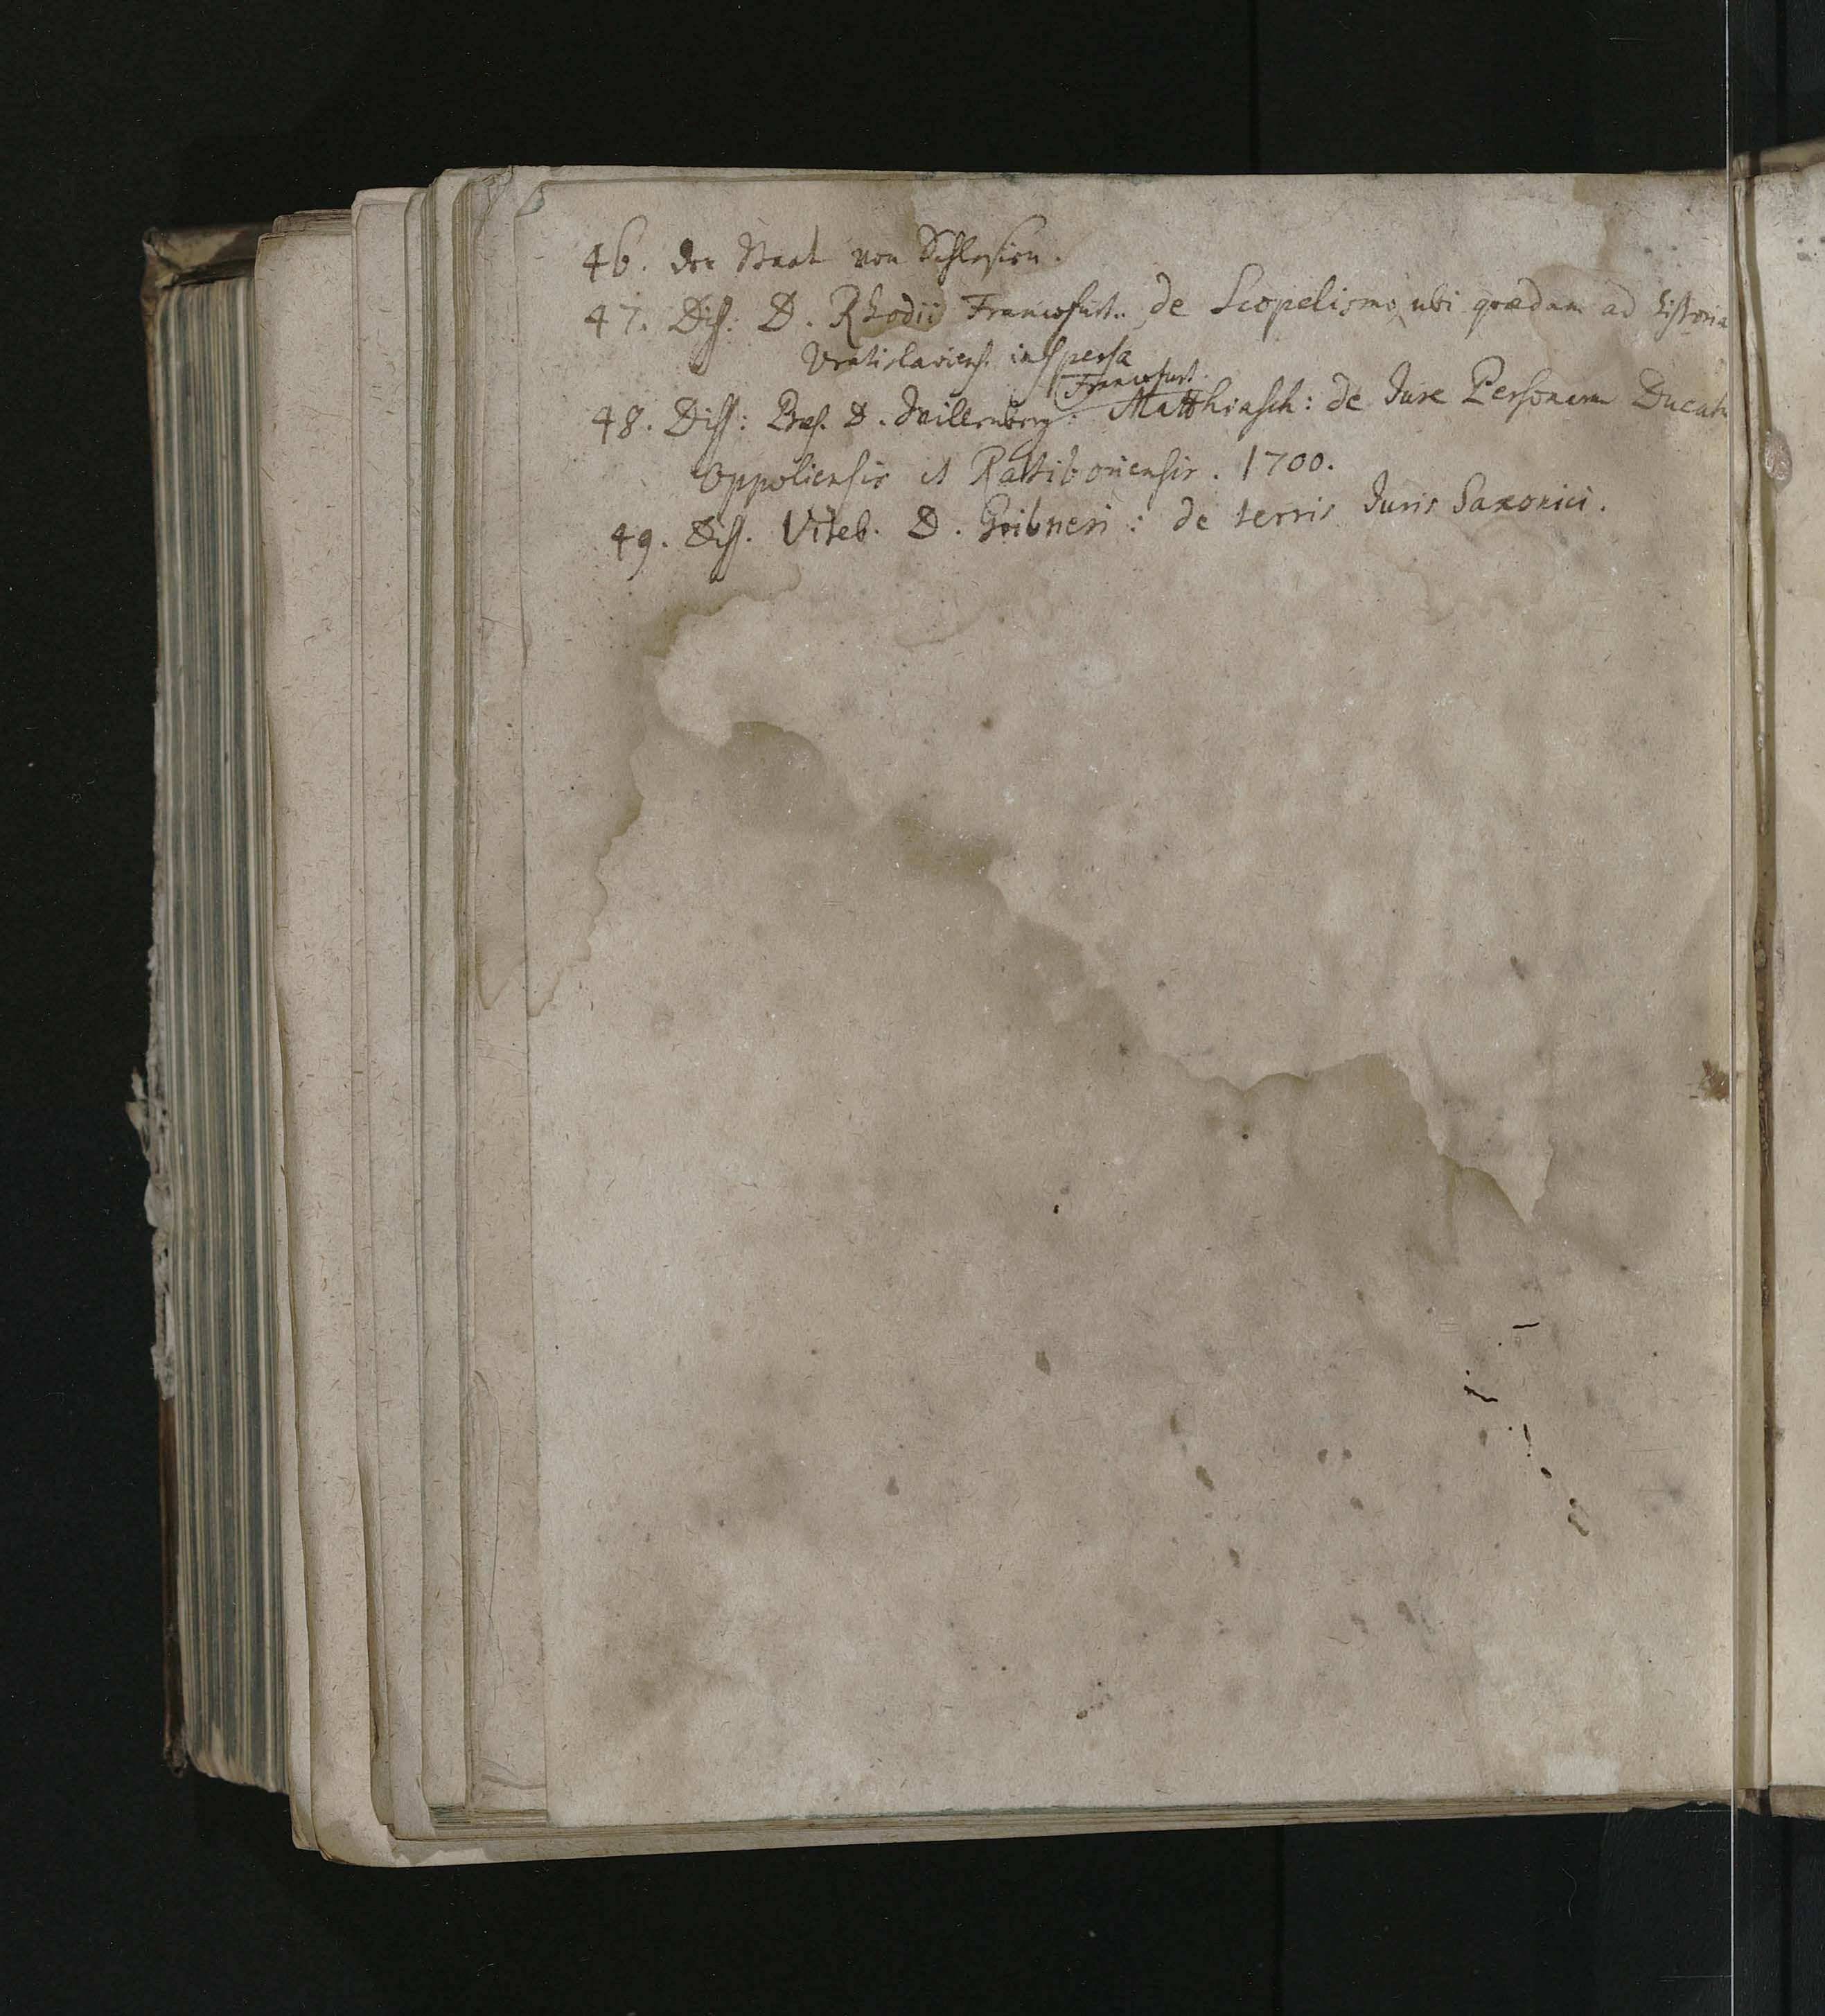 46. der Staat von Schlesien.
47. Diss: D. Rhodii Francofurt. de Scopelismo, ubi quædam ad historia
Vratislaviens. inspersa
Francofurt.
48. Diss: Præs. D. Willenberg: Matthiasch: de Jure Personarum Ducatu
Oppoliensis et Rattiboriensis. 1700.
49. Diss. Viteb. D. Gribneri: de terris Juris Saxonici.